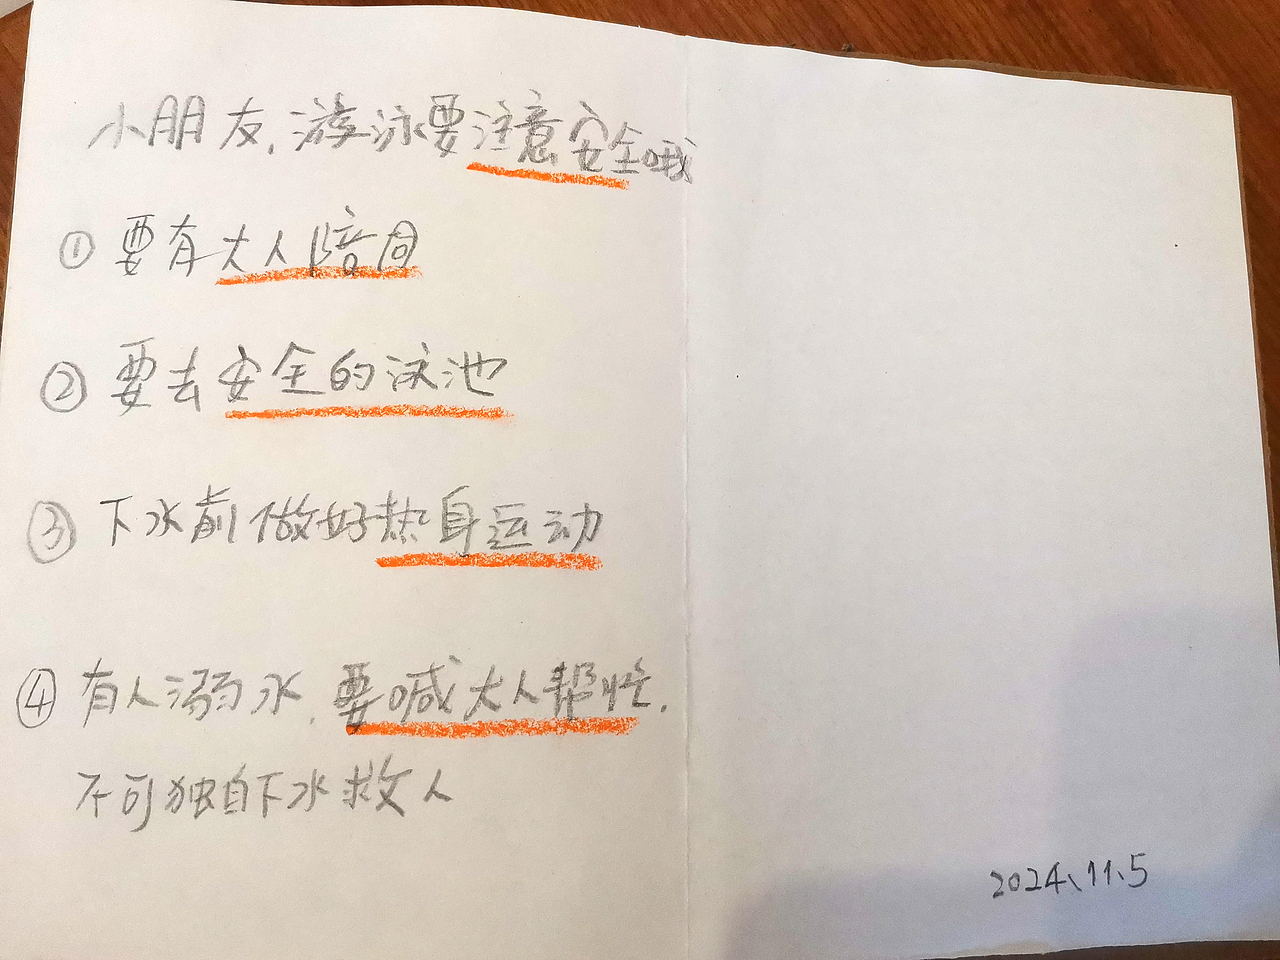 小朋友,游泳要注意安全哦
① 要有大人陪同
② 要去安全的泳池
③ 下水前做好热身运动
④ 有人溺水,要喊大人帮忙.
不可独自下水救人
2024、11、5